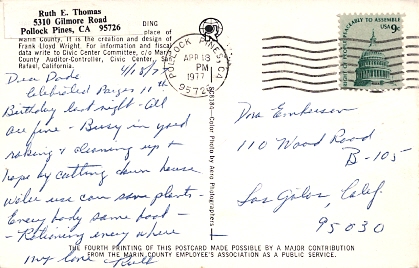 Ruth E. Thomas
5310 Gilmore Road
Pollock Pines, CA 95726
DING
place of
Marin County. It is the creation and design of
Frank Lloyd Wright. For information and fiscal
data write to Civic Center Committee, c/o Marin
County Auditor-Controller, Civic Center, San
Rafael, California.
4/18/77
Dear Dode
Celebrated 11th
Birthday last night - All
are fine - Busy in yard
raking & cleaning up &
hope by cutting down house
we can save plants -
Every body same boat -
- Rationing every where
my love Ruth
POLLOCK PINES, CA
APR 18
PM
1977
95726
TO ASSEMBLE
USA 9c
Color Photo by
Dora Emkerson
110 Wood Road
B-105
Los Gatos, Calif.
95030
THE FOURTH PRINTING OF THIS POSTCARD MADE POSSIBLE BY A MAJOR CONTRIBUTION
FROM THE MARIN COUNTY EMPLOYEE'S ASSOCIATION AS A PUBLIC SERVICE.